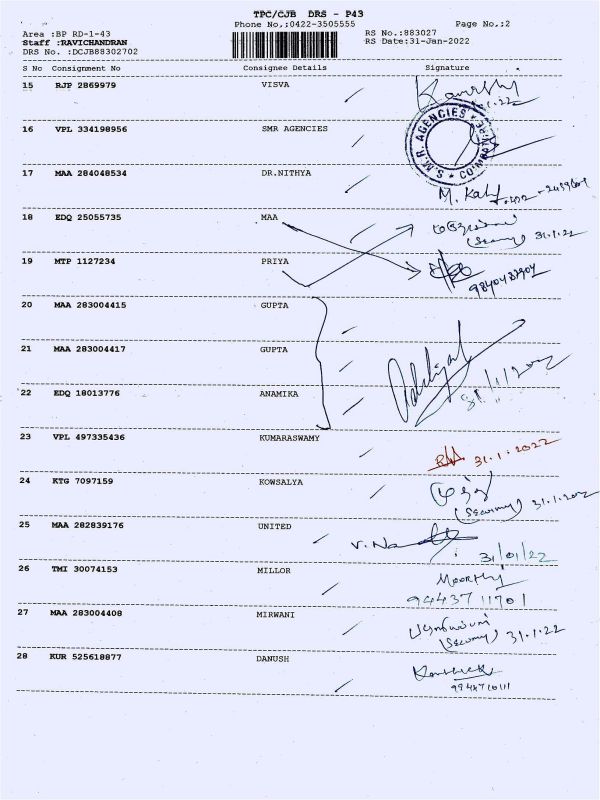 TPC/CJB DRS - P43
Phone No.:0422-3505555
Page No.:2
Area :BP RD-1-43
Staff :RAVICHANDRAN
DRS No. :DCJB88302702
RS No.:883027
RS Date:31-Jan-2022
S No Consignment No Consignee Details Signature
15 RJP 2869979 VISVA
16 VPL 334198956 SMR AGENCIES
S.M.R. AGENCIES
17 MAA 284048534 DR.NITHYA
18 EDQ 25055735 MAA
(Security) 31.1.22
19 MTP 1127234 PRIYA
20 MAA 283004415 GUPTA
21 MAA 283004417 GUPTA
22 EDQ 18013776 ANAMIKA
31/1/2022
23 VPL 497335436 KUMARASWAMY
31.1.2022
24 KTG 7097159 KOWSALYA
(Security) 31.1.2022
25 MAA 282839176 UNITED
31/01/22
26 TMI 30074153 MILLOR
Moorthy
9443711701
27 MAA 283004408 MIRWANI
(Security) 31.1.22
28 KUR 525618877 DANUSH